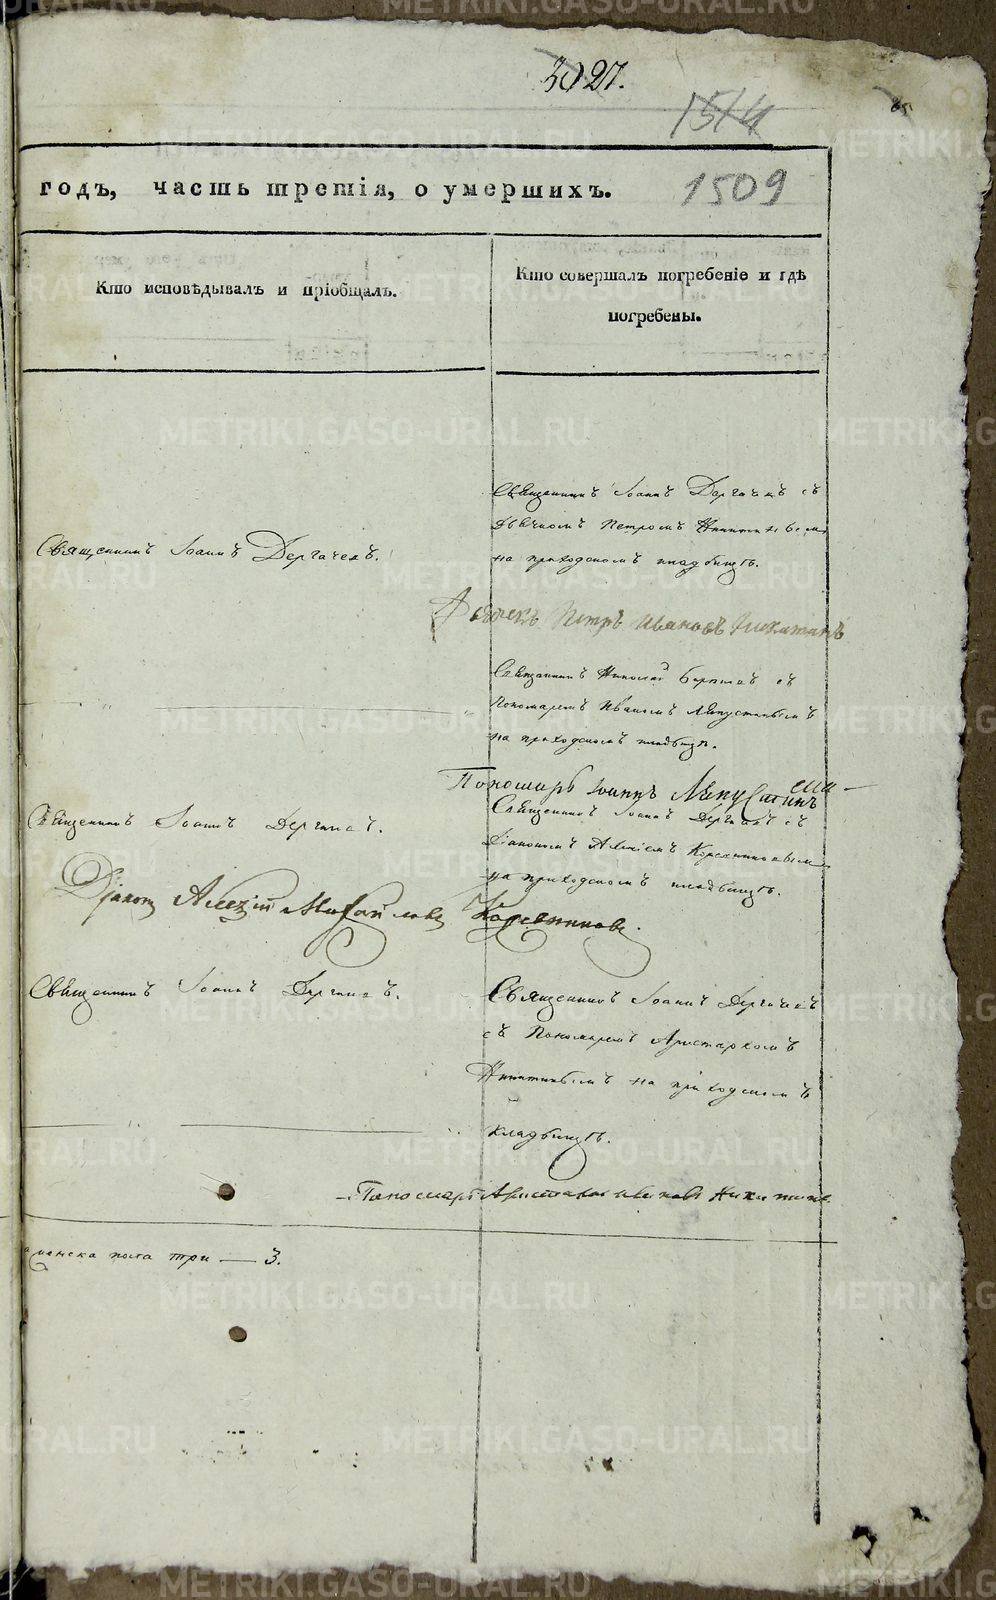 3027.
1514
85
годъ, часть третія, о умершихъ.
1509
Кто исповѣдывалъ и пріобщалъ.
Кто совершалъ погребеніе и гдѣ
погребены.
Священникъ Іоаннъ Дергачевъ съ
Дьячкомъ Петромъ Никитинымъ
на приходскомъ кладбищѣ.
Священникъ Іоаннъ Дергачевъ.
Дьячекъ Петръ Ивановъ Никитинъ
Священникъ Николай съ
Пономаремъ Иваномъ Лепустинымъ
на приходскомъ кладбищѣ.
Пономарь Іоаннъ Лепустинъ
Священникъ Іоаннъ Дергачевъ съ
Священникъ Іоаннъ Дергачевъ.
Діакономъ Алексіемъ
на приходскомъ кладбищѣ.
Діаконъ Алексій Михайловъ
Священникъ Іоаннъ Дергачевъ.
Священникъ Іоаннъ Дергачевъ
съ Пономаремъ Аристархомъ
Никитинымъ на приходскомъ
кладбищѣ.
Пономарь Аристархъ Ивановъ Никитинъ
женска пола три — 3.
METRIKI.GASO-URAL.RU